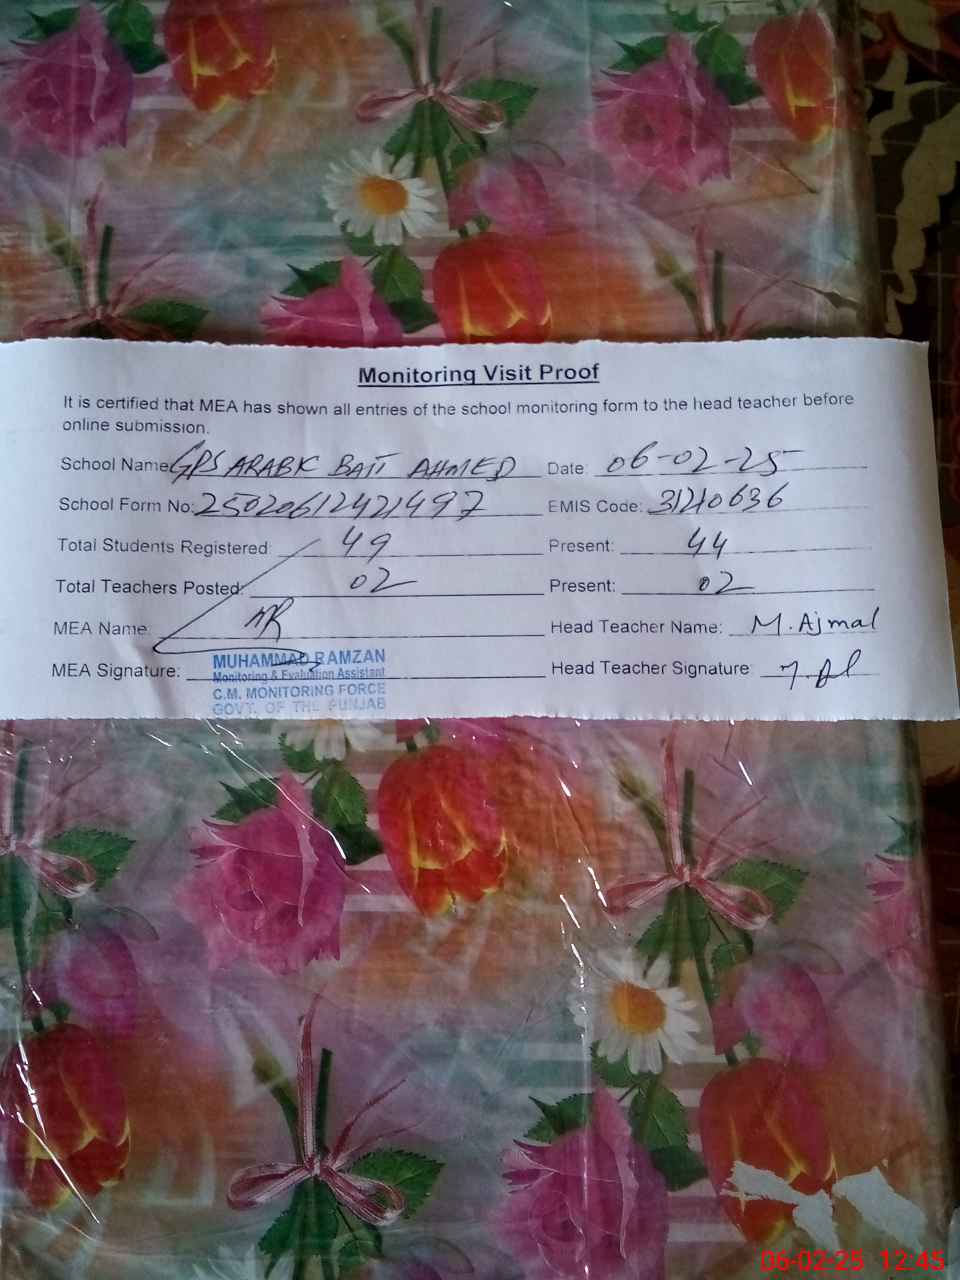 Monitoring Visit Proof
It is certified that MEA has shown all entries of the school monitoring form to the head teacher before
online submission.
School Name GPS ARABIC BAIT AHMED Date: 06-02-25
School Form No: 25020612421497 EMIS Code: 31210636
Total Students Registered 49 Present: 44
Total Teachers Posted: 02 Present: 02
MEA Name: MR Head Teacher Name: M. Ajmal
MEA Signature: Head Teacher Signature
MUHAMMAD RAMZAN
Monitoring & Evaluation Assistant
C.M. MONITORING FORCE
GOVT. OF THE PUNJAB
06-02-25 12:45